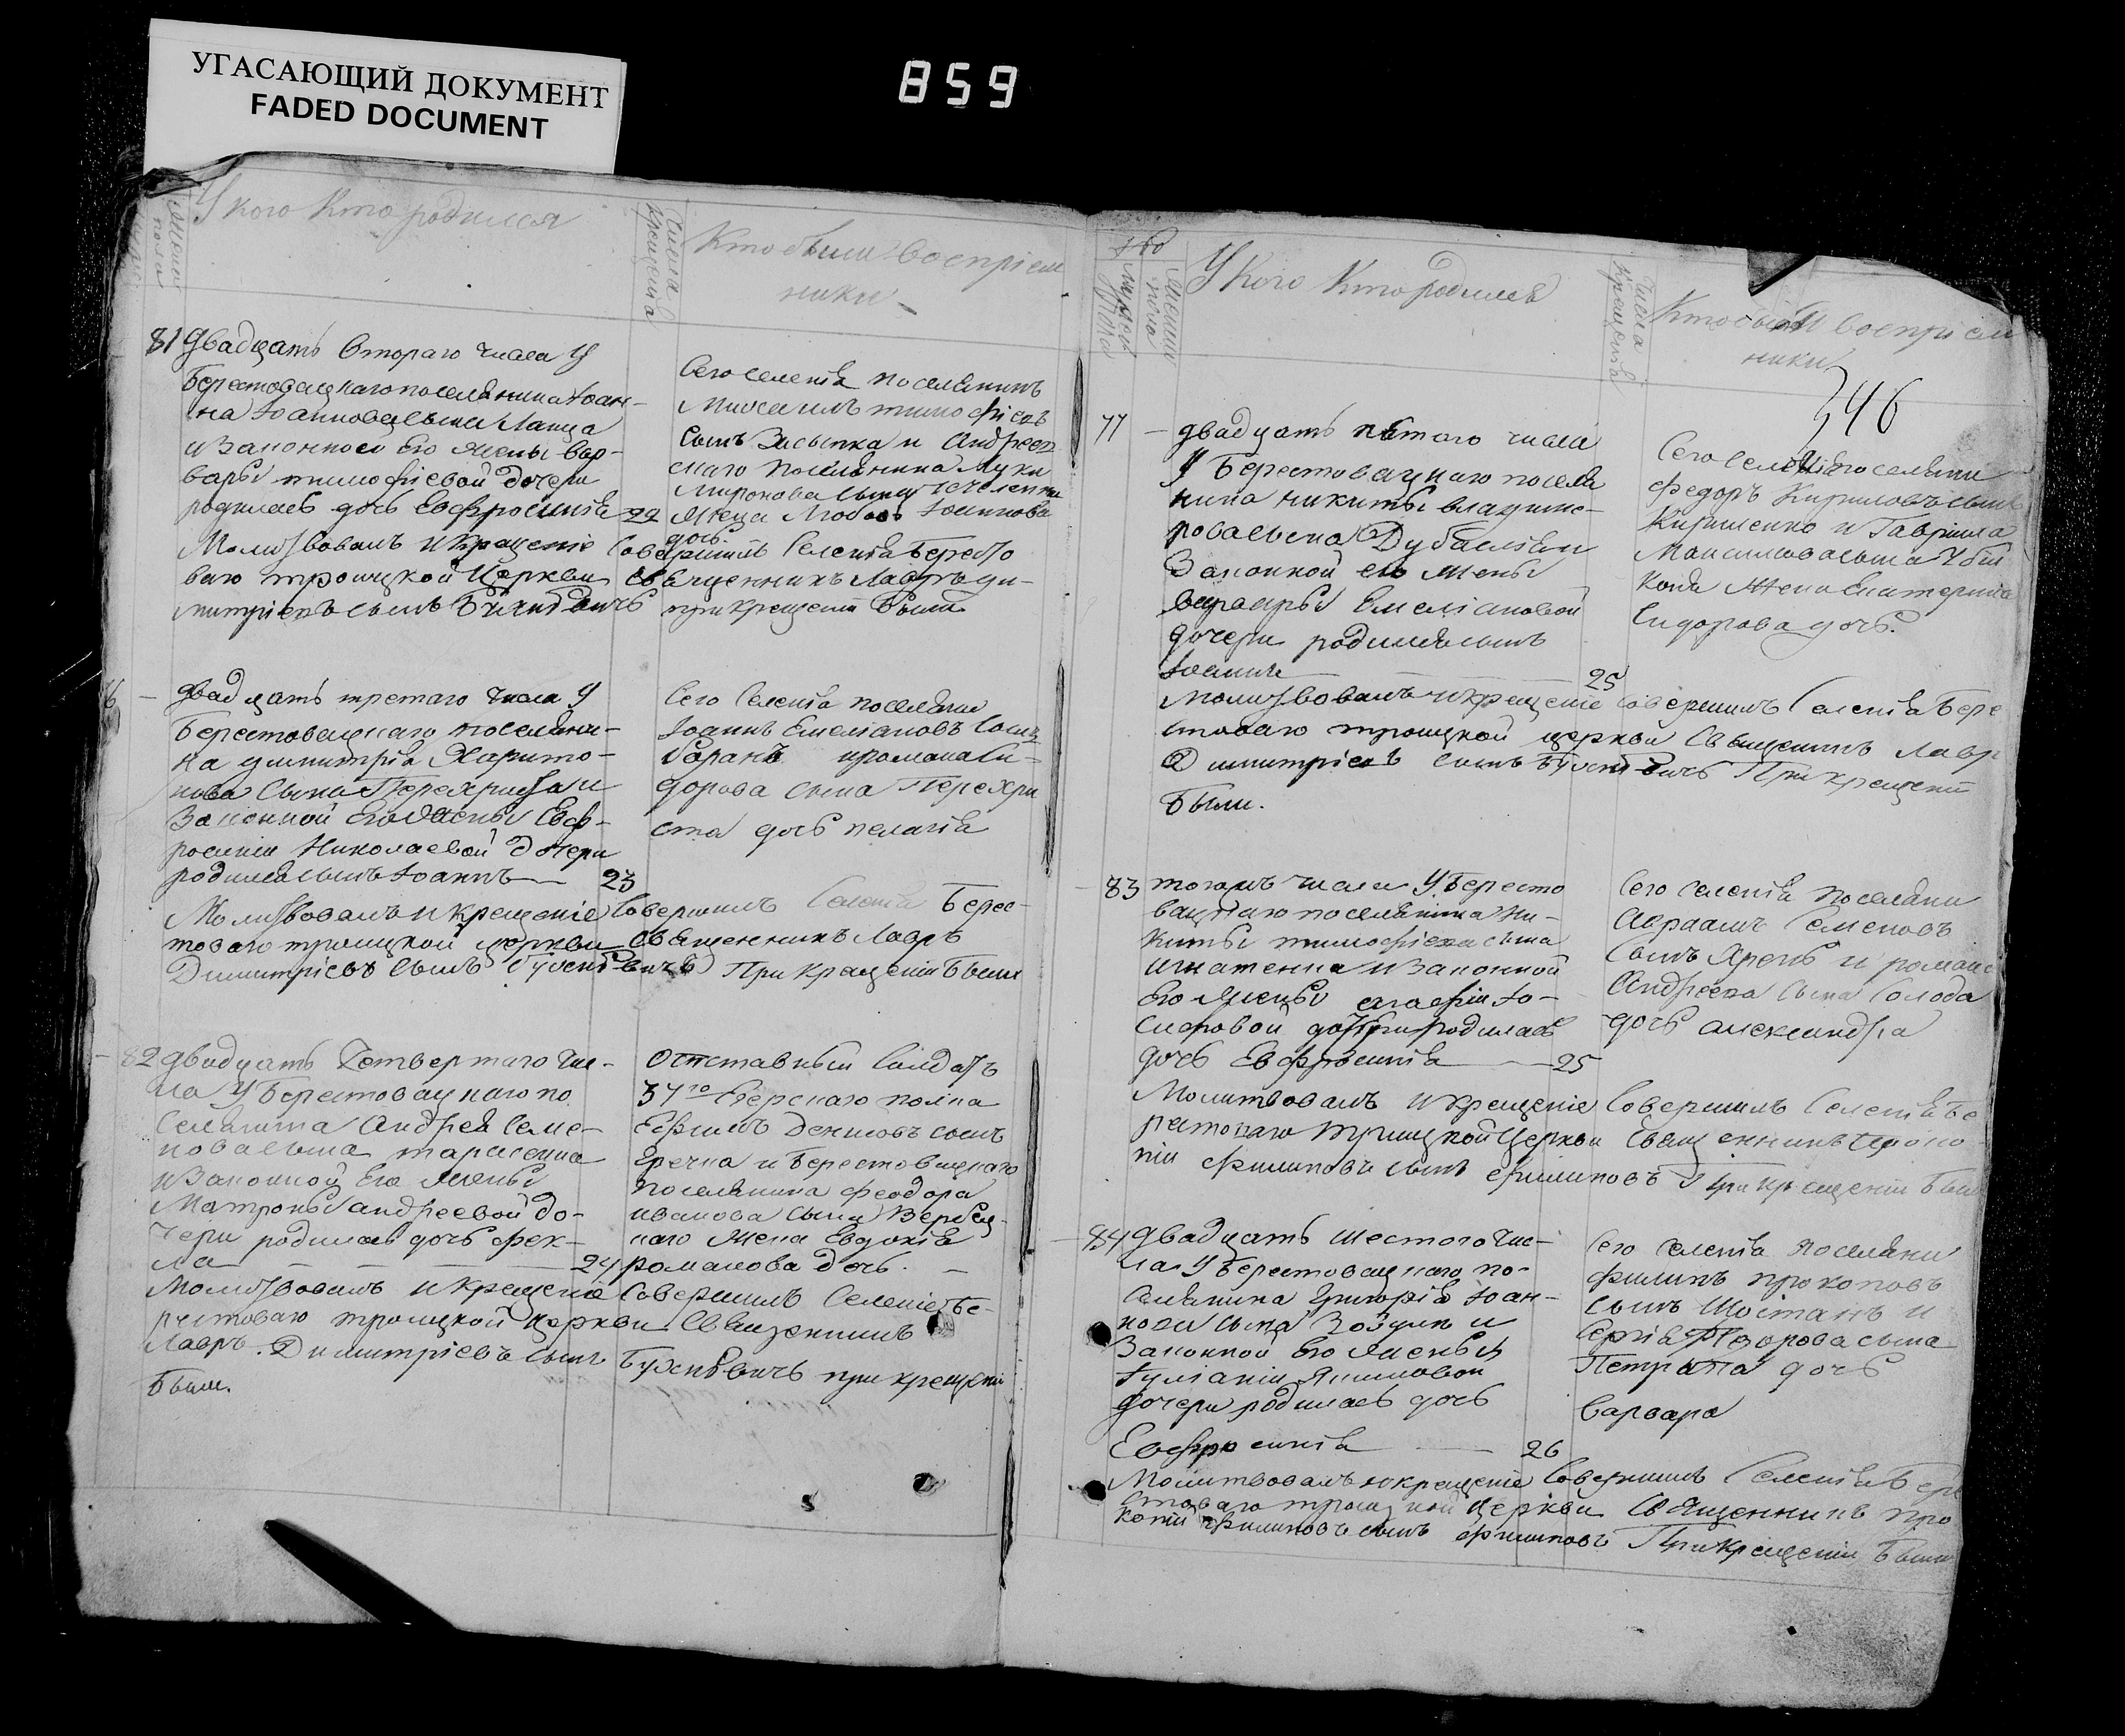 УГАСАЮЩИЙ ДОКУМЕНТ
FADED DOCUMENT
859
У кого Кто родился
Числа Крещенія
Кто были Воспріем
ники
81 двадцать втораго числа У
Берестовацкаго поселянина Іоан-
на Іоаннова сына Лапца
и Законной Его жены Вар-
вары тимофіевой дочери
родилась дочь Евфросинія 22
Сего селенія поселянинъ
Михаилъ тимофіевъ
сынъ Засыпка и Андреев
скаго поселянина Луки
Миронова сына
жена Любовь Іоаннова
дочь.
Молитвовалъ и Крещеніе Совершилъ Селенія Бересто
ваго троицкой Церкви Священникъ Лавръ ди-
митріевъ сынъ при крещеніи были
двадцать третаго числа У
Берестовацкаго поселяни-
на димитрія Харито-
нова сына Перехриста и
Законной Его жены Евф-
росиніи Николаевой дочери
родился сынъ Іоаннъ 23
Сего Селенія поселяне
Іоаннъ Емеліановъ сынъ
баранъ и романа Си-
дорова сына Перехри
ста дочь пелагія
Молитвовалъ и крещеніе Совершилъ Селенія Берес-
товаго троицкой церкви Священникъ Лавръ
Димитріевъ сынъ При Крещеніи Были
82 двадцать Четвертаго чис-
ла У Берестовацкаго по
селянина Андрея Семе-
нова сына тарасенка
и Законной Его жены
Матроны андреевой до-
чери родилась дочь фек-
ла 24
Отставный Солдатъ
34го Егерскаго полка
Ефимъ Денисовъ сынъ
Гречка и Берестовацкаго
поселянина феодора
иванова сына Вербец-
каго жена Евдокія
романова дочь.
Молитвовалъ и крещеніе Совершилъ Селенія Бе-
рестоваго троицкой церкви Священникъ
Лавръ Димитріевъ сынъ при крещеніи
Были.
У Кого Кто родился
Числа Крещенія
Кто были воспріем
ники
346
77 двадцать пятого числа
У Берестовацкаго поселя
нина никиты владими-
рова сына и
Законной его жены
варвары Емеліановой
дочери родился сынъ
Іоаннъ 25
Сего Селенія поселяне
федоръ Кириловъ сынъ
Кириленко и Гавріила
Максимова сына Убій
конь жена Екатерина
Сидорова дочь.
Молитвовалъ и крещеніе Совершилъ Селенія Бере
стоваго троицкой церкви Священникъ Лавр
Димитріевъ сынъ При крещеніи
Были.
83 тогожъ числа У Бересто
вацкаго поселянина Ни-
киты тимофіева сына
игнатенка и Законной
Его жены агафіи Іо-
сифовой дочери родилась
дочь Евфросинія 25
Сего Селенія поселяне
Авраамъ Семеновъ
сынъ Хренъ и романа
Андреева сына Солода
дочь александра
Молитвовалъ и крещеніе Совершилъ Селенія Бе
рестоваго троицкой Церкви Священникъ Проко
пій филиповъ сынъ филиповъ При крещеніи Были
84 двадцать шестого чис-
ла У Берестовацкаго по-
селянина Григорія Іоан-
нова сына и
Законной Его жены
Іуліаніи Якимовой
дочери родилась дочь
Евфросинія 26
Сего Селенія поселяне
филипъ прокоповъ
сынъ Шостакъ и
Сергія Феодорова сына
дочь
варвара
Молитвовалъ и крещеніе Совершилъ Селенія Бере
стоваго троицкой Церкви Священникъ Про
копій филиповъ сынъ филиповъ При Крещеніи Были